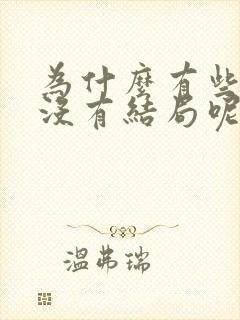 為什麼有些
沒有結局呢
溫弗瑞